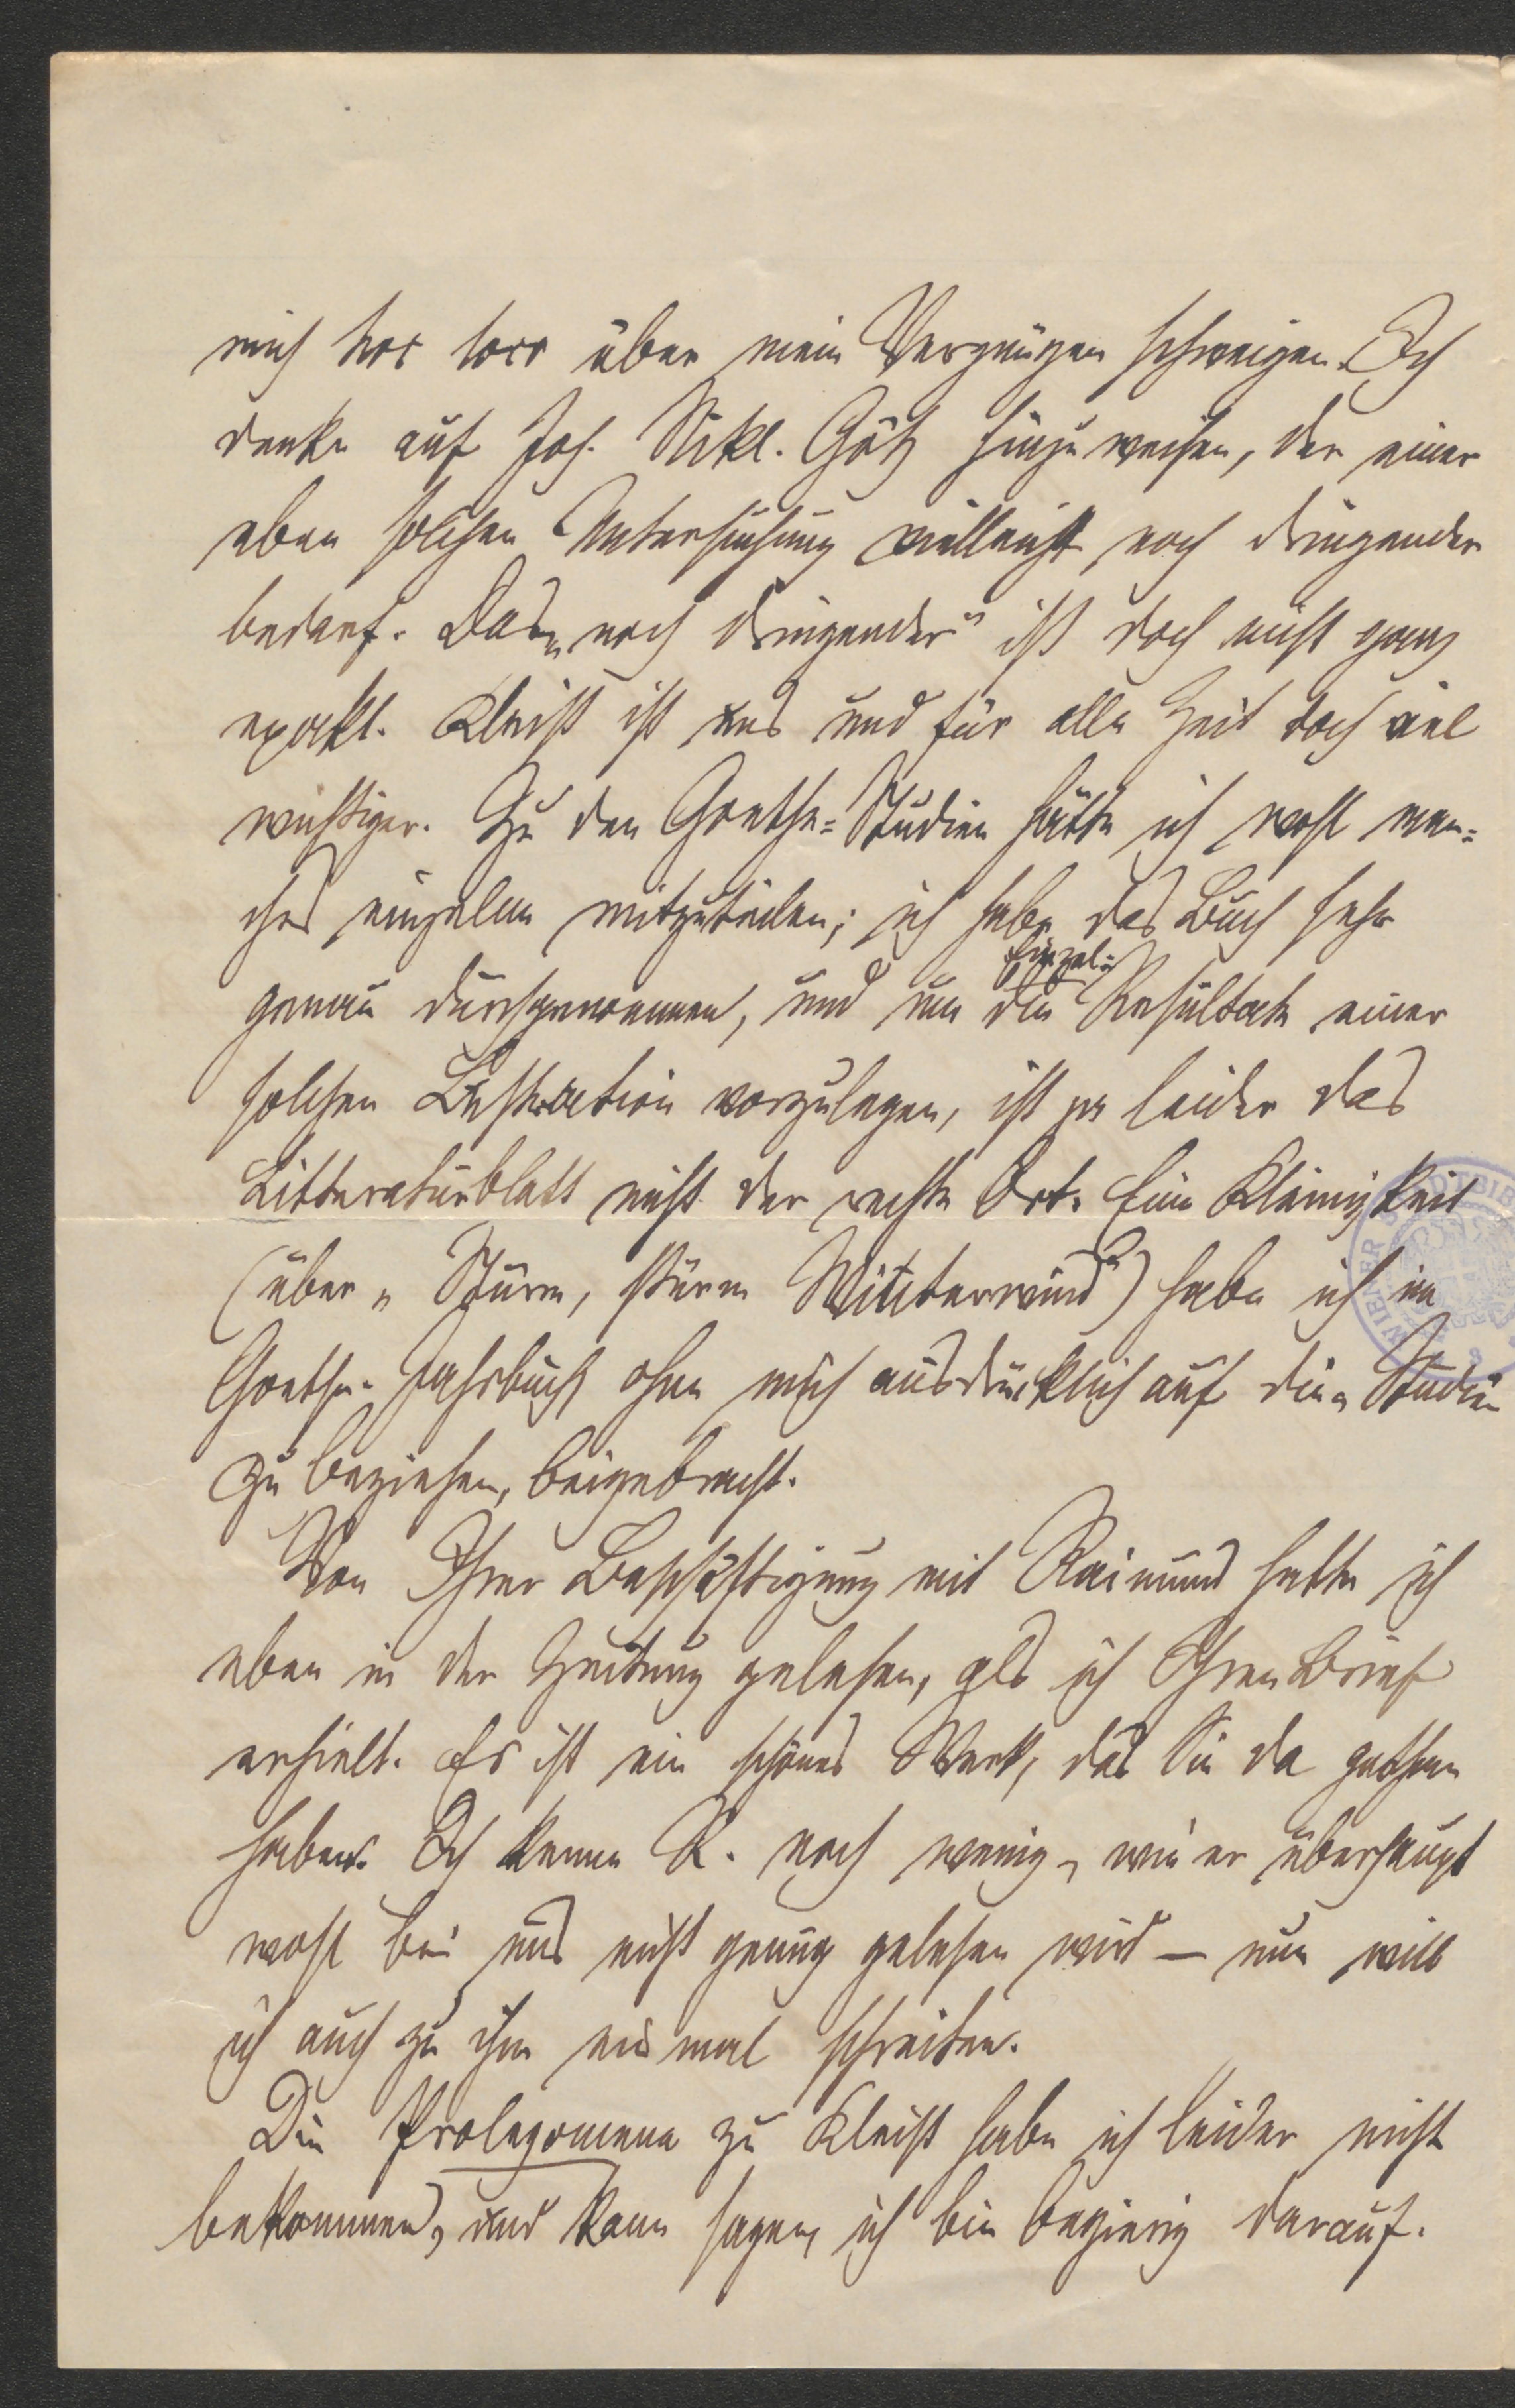 mich hoc loco über mein Vergnügen schweigen. Ich
denke auf Joh. Nikl. Götz hinzuweisen, der einer
eben solchen Untersuchung vielleicht noch dringender
bedarf. Das „noch dringender“ ist doch nicht ganz
exakt. Kleist ist uns und für alle Zeit doch viel
wichtiger. Zu den Goethe-Studien hätte ich wohl man-
ches einzelne mitzuteilen; ich habe das Buch sehr
genau durchgenommen, und um die Einzel-Resultate einer
solchen Lustration vorzulegen, ist ja leider das
Litteraturblatt nicht der rechte Ort. Eine Kleinigkeit
(über „Stürm, stürm Winterwind“) habe ich im
Goethe-Jahrbuch ohne mich ausdrücklich auf die „Studien
zu beziehen, beigebracht.
Von Ihrer Beschäftigung mit Raimund hatte ich
eben in der Zeitung gelesen, als ich Ihren Brief
erhielt. Es ist ein schönes Werk, das Sie da gethan
haben. Ich kenne R. noch wenig, wie er überhaupt
wohl bei uns nicht genug gelesen wird – nun will
ich auch zu ihm einmal schreiten.
Die Prolegomena zu Kleist habe ich leider nicht
bekommen, und kann sagen, ich bin begierig darauf.